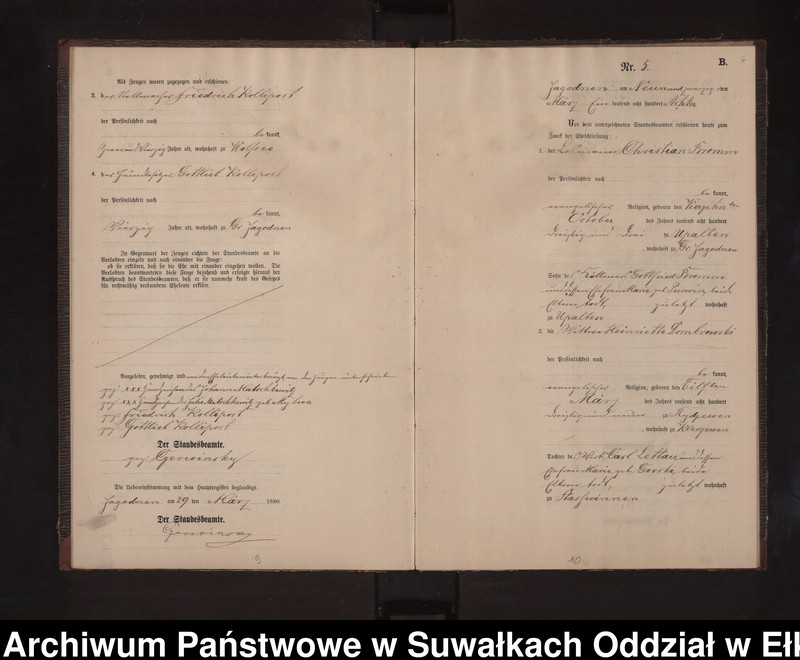 Als Zeugen waren zugezogen und erschienen:
3. der Friedrich Kollipost
der Persönlichkeit nach
be kannt,
Jahre alt, wohnhaft zu Wolfsee
4. der Gottlieb Kollipost
der Persönlichkeit nach
be kannt,
Vierzig Jahre alt, wohnhaft zu Gr. Jagodnen
In Gegenwart der Zeugen richtete der Standesbeamte an die
Verlobten einzeln und nach einander die Frage:
ob sie erklären, daß sie die Ehe mit einander eingehen wollen. Die
Verlobten beantworteten diese Frage bejahend und erfolgte hierauf der
Ausspruch des Standesbeamten, daß er sie nunmehr kraft des Gesetzes
für rechtmäßig verbundene Eheleute erkläre.
Vorgelesen, genehmigt und
gez. xxx Handzeichen des Johann
gez. xxx Handzeichen der geb.
gez. Friedrich Kollipost
gez. Gottlieb Kollipost
Der Standesbeamte.
gez.
Die Uebereinstimmung mit dem Hauptregister beglaubigt.
Jagodnen am 29 ten März 1880.
Der Standesbeamte.
9
Nr. 5.
B.
6
Jagodnen, am Neunundzwanzig ten
März tausend acht hundert
Vor dem unterzeichneten Standesbeamten erschienen heute zum
Zweck der Eheschließung:
1. der Christian
der Persönlichkeit nach
be kannt,
evangelischer Religion, geboren den
October des Jahres tausend acht hundert
dreißig und drei zu Upalten
, wohnhaft zu Gr. Jagodnen
Sohn des Gottfried
und dessen Ehefrau Marie geb. beide
Eltern todt, zuletzt wohnhaft
zu Upalten
2. die Wittwe Heinriette Dombrowski
der Persönlichkeit nach
be kannt,
evangelischer Religion, geboren den Eilften
März des Jahres tausend acht hundert
dreißig und neun zu Rydzewen
, wohnhaft zu
Tochter des Wirth Carl und dessen
Ehefrau Marie geb. beide
Eltern todt, zuletzt wohnhaft
zu Staßwinnen
10
Archiwum Państwowe w Suwałkach Oddział w Ełk